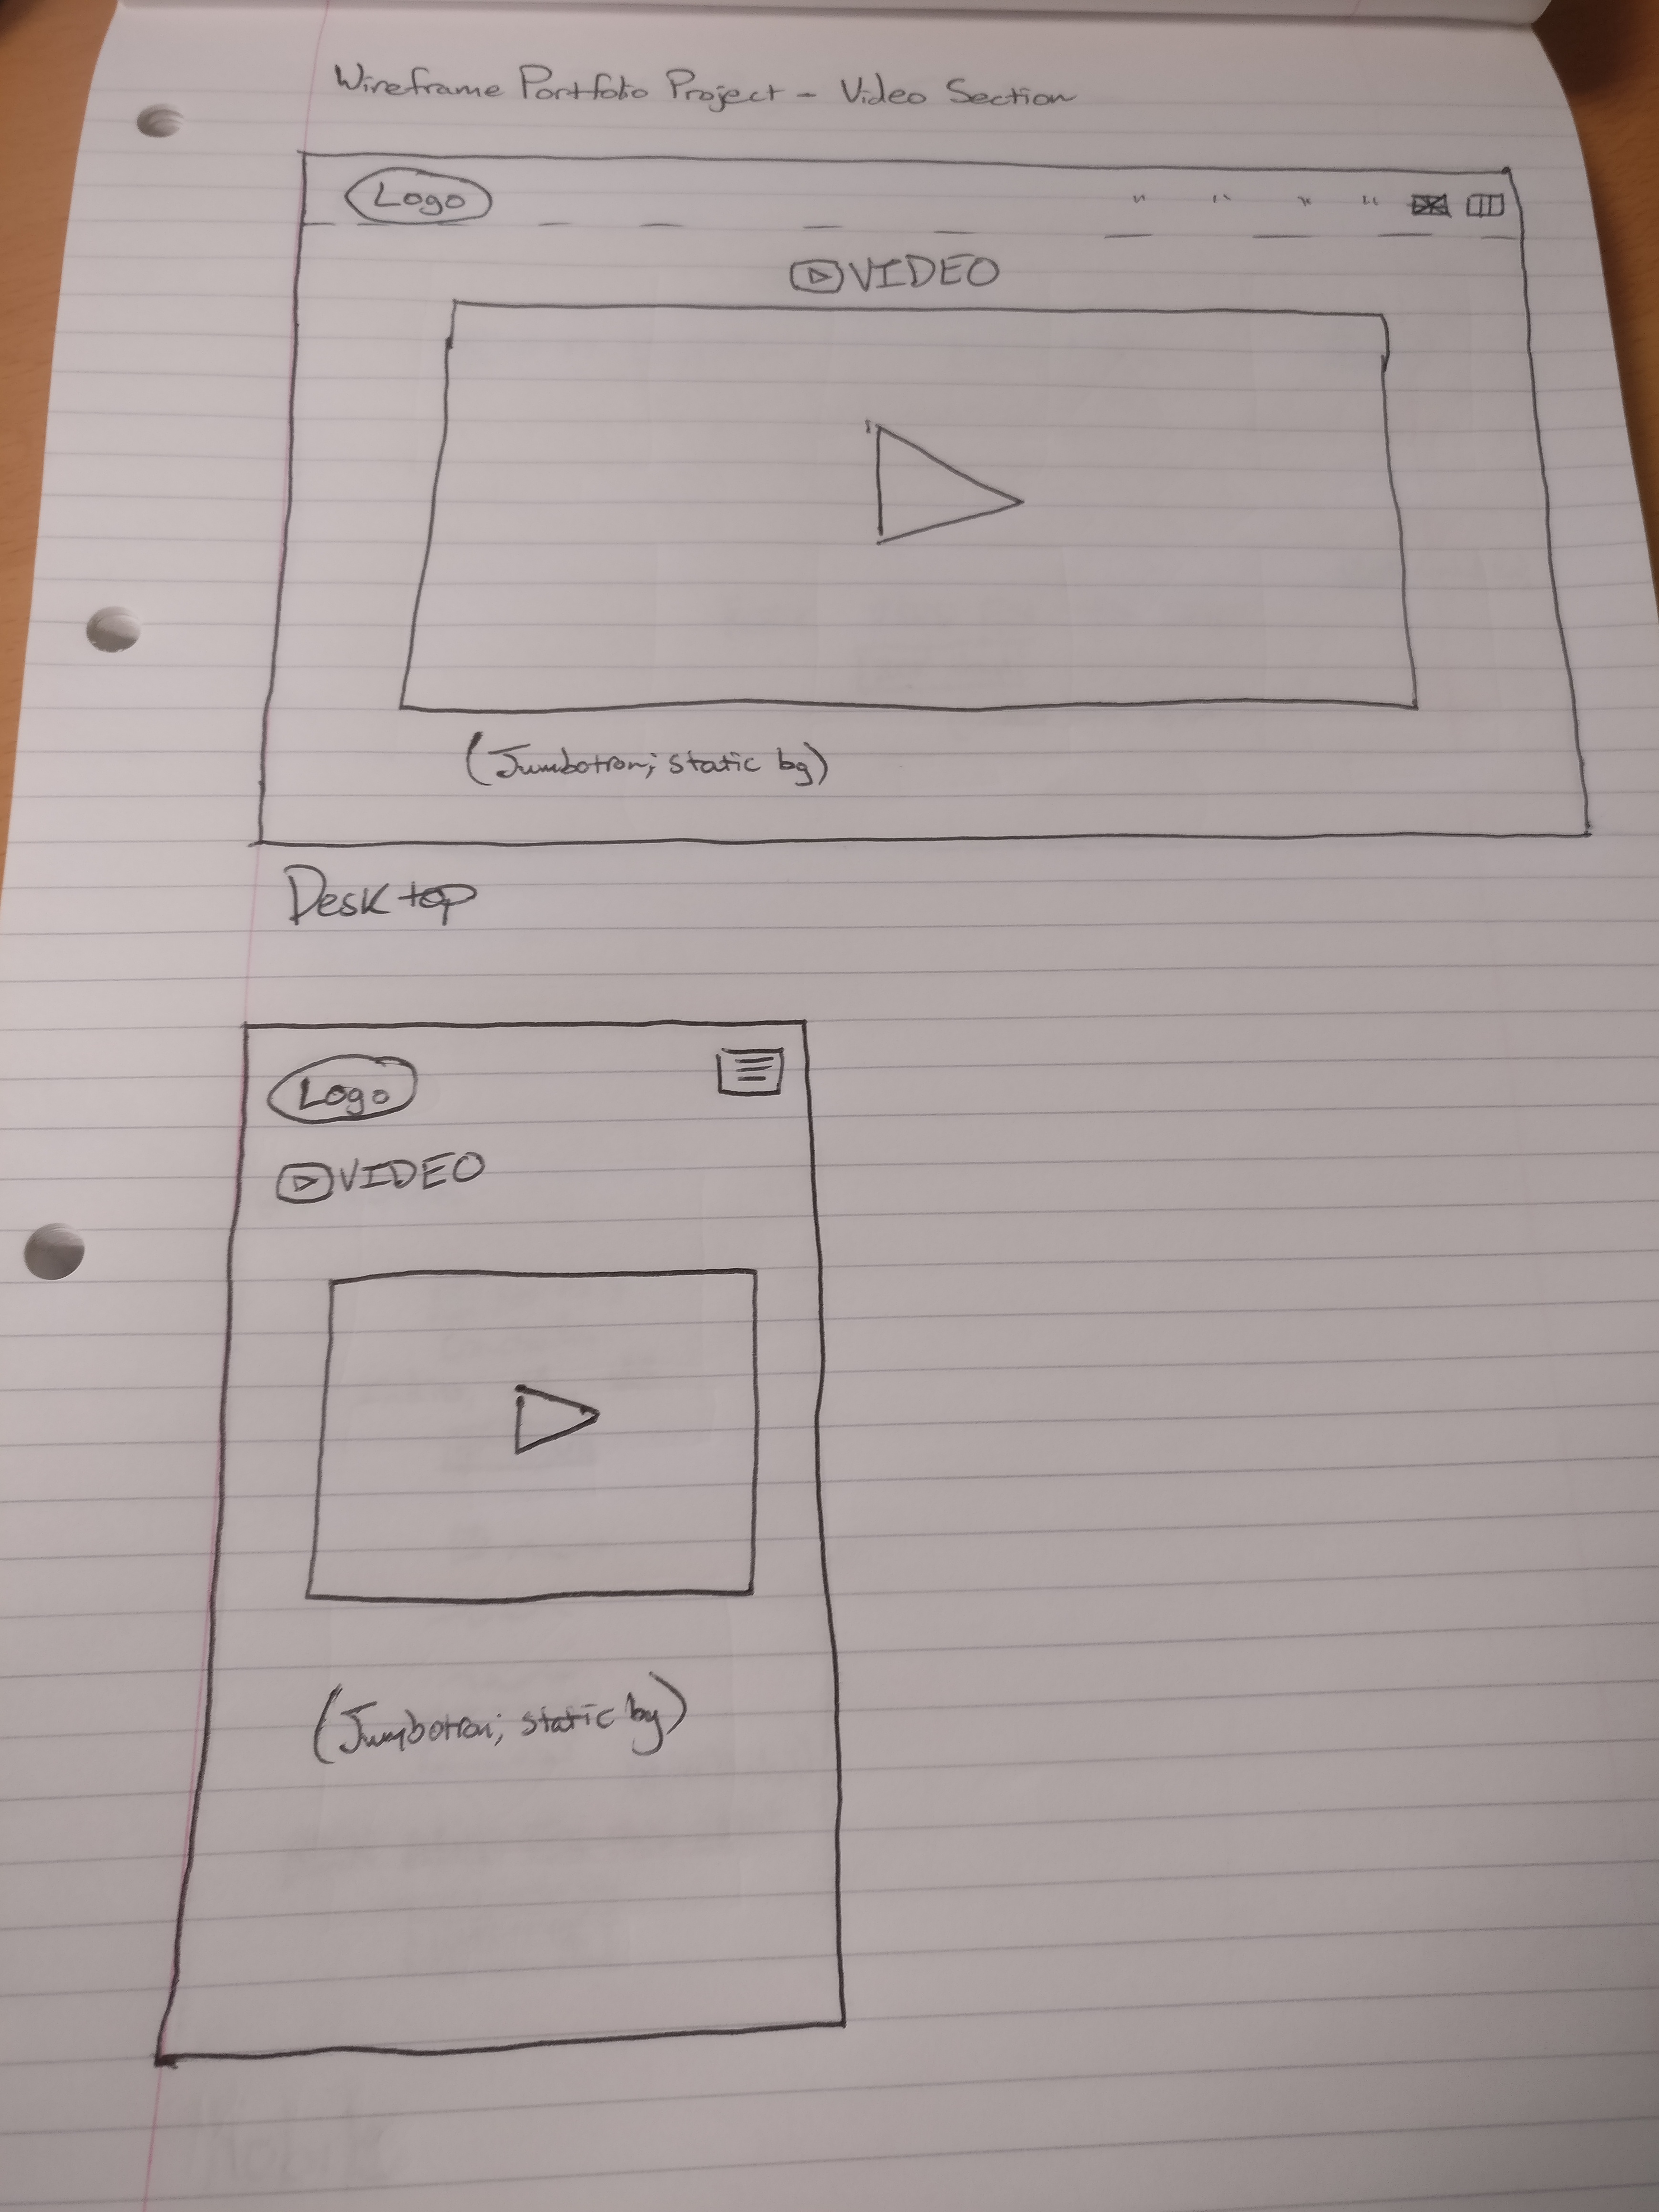 Wireframe Portfolio Project - Video Section
Logo " " " "
VIDEO
(Jumbotron; static bg)
Desktop
Logo
VIDEO
(Jumbotron; static bg)